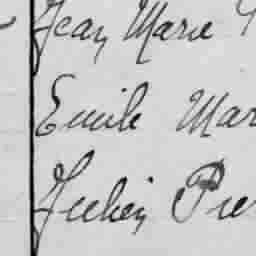 Jean Marie
Emile Mar
Julien Pier